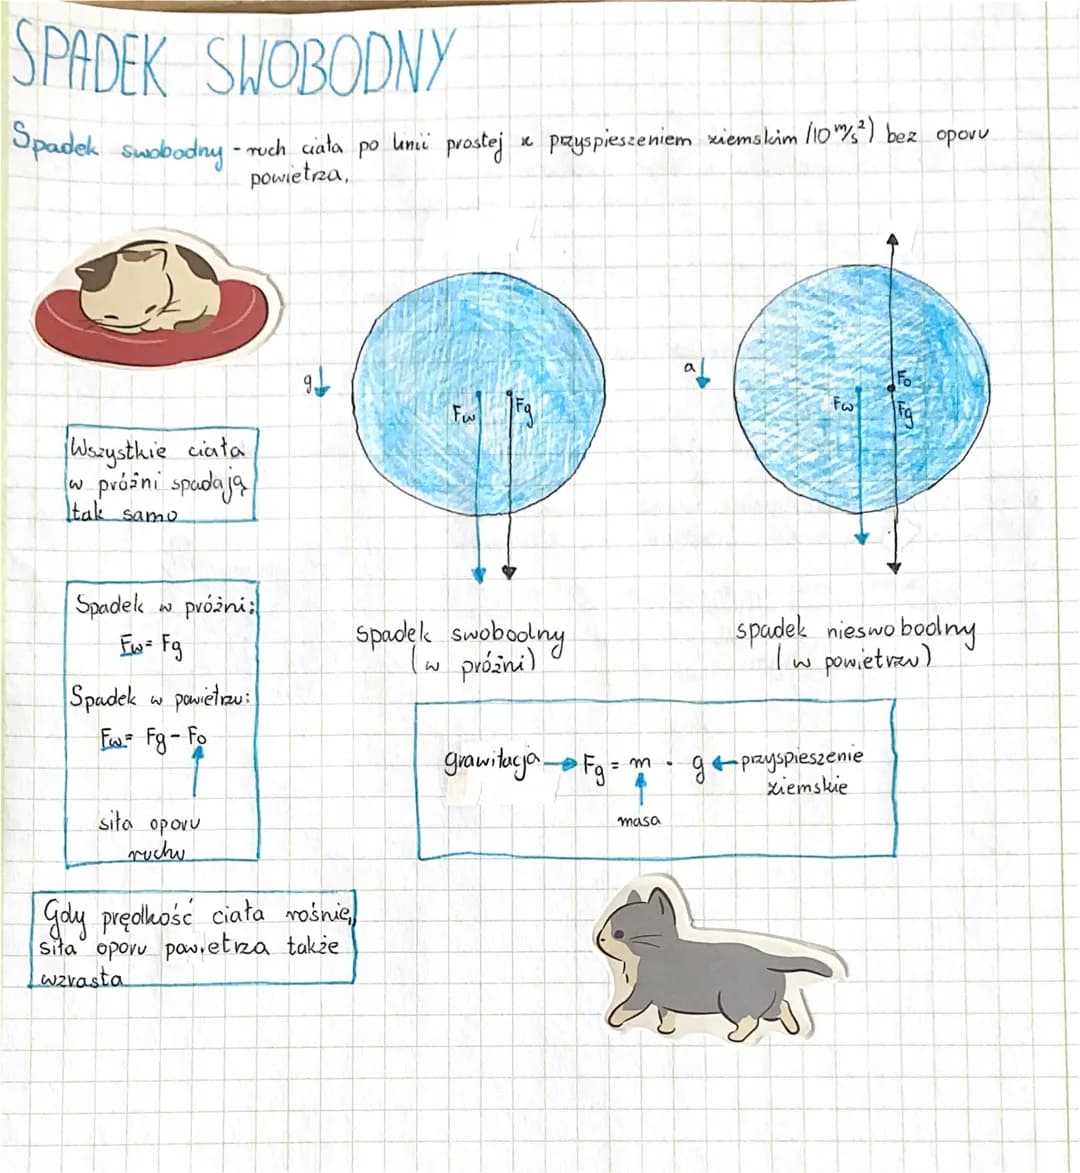 SPADEK SWOBODNY
Spadek swobodny - ruch ciała po linii prostej z przyspieszeniem ziemskim (10 m/s²) bez oporu
powietrza.
g
Fw Fg
a
Fo
Fw Fg
Wszystkie ciała
w próżni spadają
tak samo
Spadek w próżni:
Fw = Fg
Spadek w powietrzu:
Fw = Fg - Fo
siła oporu
ruchu
spadek swobodny
(w próżni)
spadek nieswobodny
(w powietrzu)
grawitacja → Fg = m · g ← przyspieszenie
ziemskie
masa
Gdy prędkość ciała rośnie,
siła oporu powietrza także
wzrasta